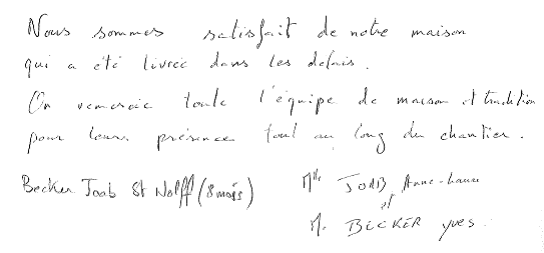 Nous sommes satisfait de notre maison
qui a été livrée dans les délais.
On remercie toute l'équipe de maison et tradition
pour leurs présence tout au long du chantier.
Becker Joab St Wolff (8 mois) Mlle JOAB Anne-Laure
et
M. BECKER Yves.